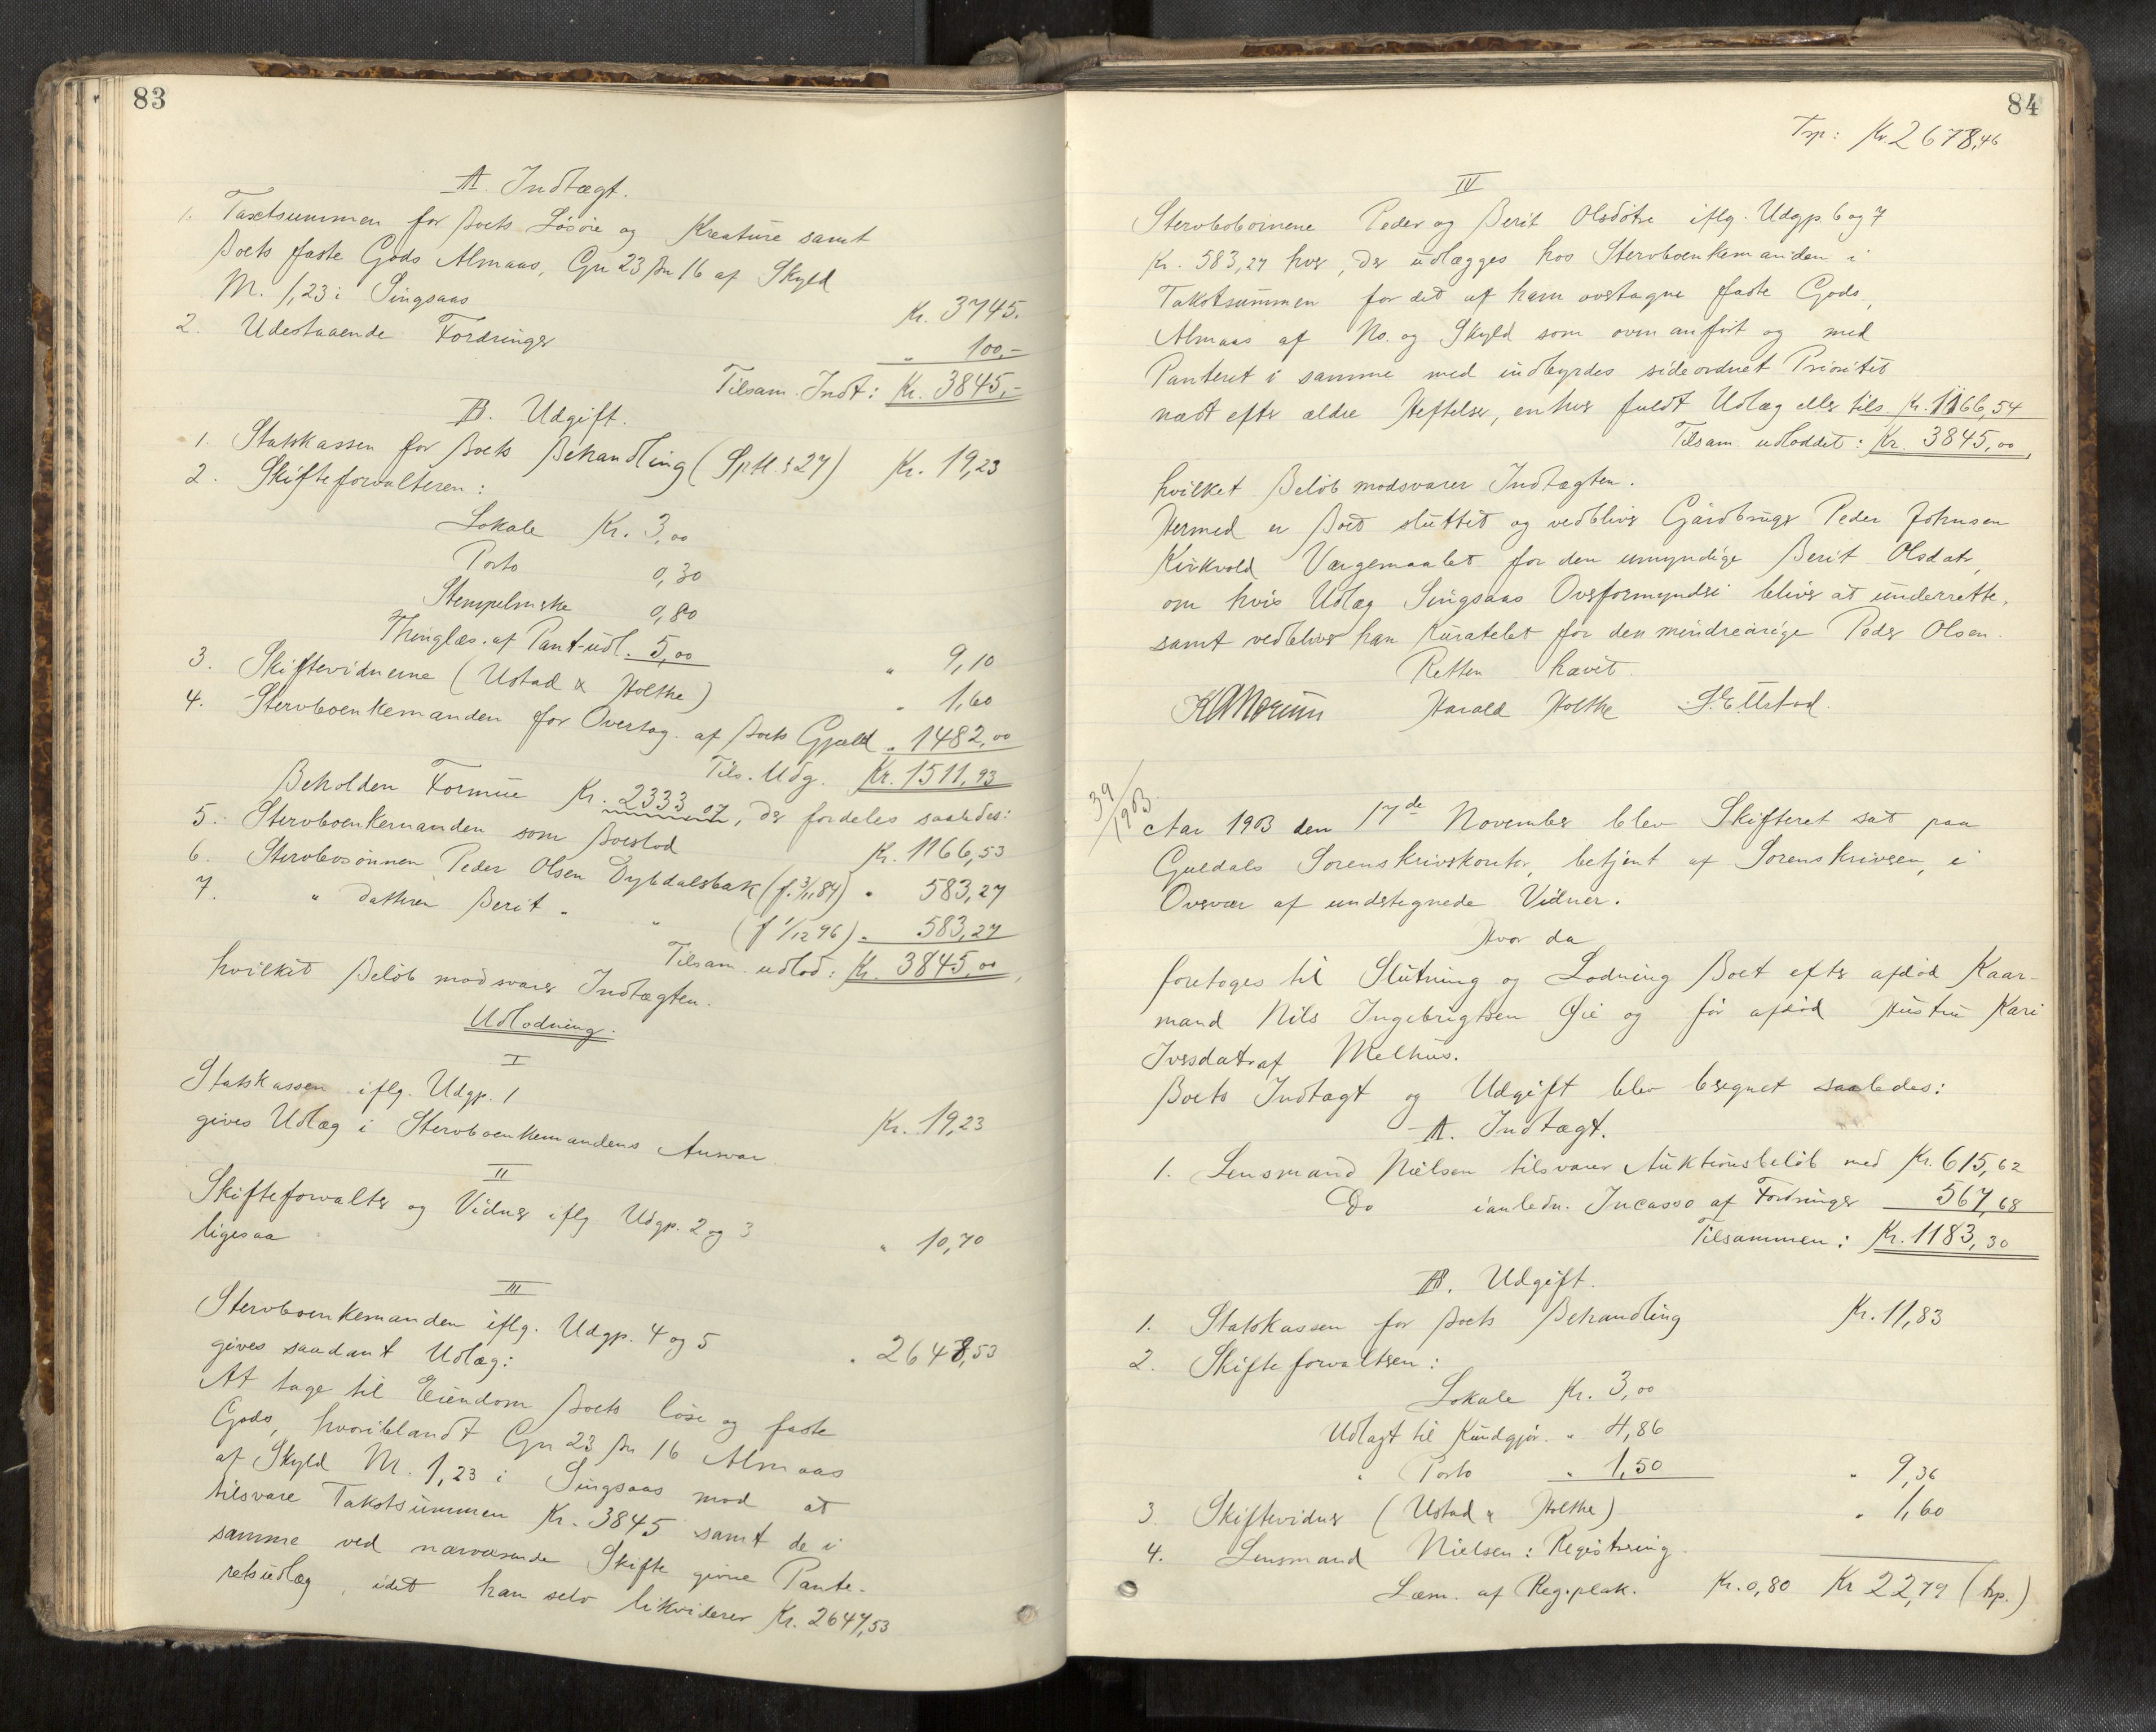 83
A. Indtægt.
1. Taxtsummen for Boets Løsøre og Kreature samt
Boets faste Gods Almaas, Gn 23 Bn 16 af Skyld
M. 1,23 i Singsaas Kr. 3745.
2. Udestaaende Fordringer " 100,-
Tilsam. Indt: Kr. 3845,-
B. Udgift.
1. Statskassen for Boets Behandling (Sptl. § 27) Kr. 19,23
2. Skifteforvalteren:
Lokale Kr. 3,00
Porto 0,30
Stempelmerke 0,80
Thinglæs. af Pant-udl. 5,00 " 9,10
3. Skiftevidnerne (Ustad & Holthe) " 1,60
4. Stervboenkemanden for Overtag. af Boets Gjæld " 1482,00
Tils. Udg. Kr. 1511,93
Beholden Formue Kr. 2333 07, der fordeles saaledes:
5. Stervboenkemanden som Boeslod Kr. 1166,53
6. Stervbosønnen Peder Olsen Dybdalsbak (f. 3/11 84) " 583,27
7. " datteren Berit " " (f 1/12 96) " 583,27
Tilsam. udlod: Kr. 3845,00,
hvilket Beløb modsvarer Indtægten.
Udlodning.
I
Statskassen iflg. Udgp. 1
gives Udlæg i Stervboenkemandens Ansvar Kr. 19,23
II
Skifteforvalter og Vidner iflg Udgp. 2 og 3
ligesaa " 10,70
III
Stervboenkemanden iflg. Udgp. 4 og 5
gives saadant Udlæg: " 2648,53
At tage til Eiendom Boets løse og faste
Gods, hvoriblandt Gn 23 Bn 16 Almaas
af Skyld M. 1,23 i Singsaas mod at
tilsvare Takstsummen Kr. 3845 samt de i
samme ved nærværende Skifte givne Pante-
retsudlæg, idet han selv likviderer Kr. 2647,53
84
Trp: Kr. 2678,46
IV
Stervbobørnene Peder og Berit Olsdøtre iflg. Udgp. 6 og 7
Kr. 583,27 hver, der udlægges hos Stervboenkemanden i
Takstsummen for det af ham overtagne faste Gods,
Almaas af No. og Skyld som oven anført og med
Panteret i samme med indbyrdes sideordnet Prioritet
næst efter ældre Heftelser, enhver fuldt Udlæg eller tils. Kr. 1166,54
Tilsam. udloddet: Kr. 3845,00,
hvilket Beløb modsvarer Indtægten.
Hermed er Boet sluttet og vedbliver Gårdbruger Peder Johnsen
Kirkvold Værgemaalet for den umyndige Berit Olsdatr,
om hvis Udlæg Singsaas Overformynderi bliver at underrette,
samt vedbliver han Kuratelet for den mindreårige Peder Olsen.
Retten hævet.
Harald Holthe
39/1903.
Aar 1903 den 17de November blev Skifteret sat paa
Guldals Sorenskriverkontor, betjent af Sorenskriveren, i
Overvær af undertegnede Vidner.
Hvor da
foretoges til Slutning og Lodning Boet efter afdød Kaar-
mand Nils Ingebrigtsen Øie og før afdød Hustru Kari
Iversdatr af Melhus.
Boets Indtægt og Udgift blev beregnet saaledes:
A. Indtægt.
1. Lensmand Nielsen tilsvarer Auktionsbeløb med Kr. 615,62
Do ianledn. Incasso af Fordringer 567,68
Tilsammen: Kr. 1183,30
B. Udgift.
1. Statskassen for Boets Behandling Kr. 11,83
2. Skifteforvalteren:
Lokale Kr. 3,00
Udlagt til Kundgjør. " 4,86
" Porto " 1,50 " 9,36
3. Skiftevidner (Ustad & Holthe) " 1,60
4. Lensmand Nielsen: Registrering.
Læm. af Reg.plak. Kr. 0,80 Kr 22,79 (trp.)